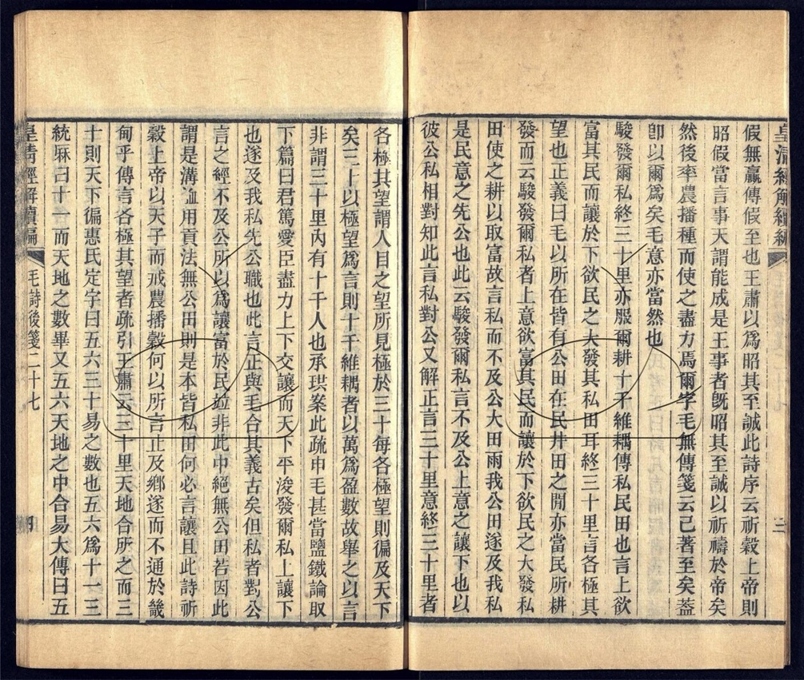 皇清經解續編
三
假無贏傳假至也王肅以為昭其至誠此詩序云祈穀上帝則
昭假當言事天謂能成是王事者旣昭其至誠以祈禱於帝矣
然後率農播種而使之盡力焉爾字毛無傳箋云己著至矣葢
卽以爾為矣毛意亦當然也
駿發爾私終三十里亦服爾耕十千維耦傳私民田也言上欲
富其民而讓於下欲民之大發其私田耳終三十里言各極其
望也正義曰毛以所在皆有公田在民井田之閒亦當民所耕
發而云駿發爾私者上意欲富其民而讓於下欲民之大發私
田使之耕以取富故言私而不及公大田雨我公田遂及我私
是民意之先公也此云駿發爾私言不及公上意之讓下也以
彼公私相對知此言私對公又解正言三十里意終三十里者
各極其望謂人目之望所見極於三十每各極望則徧及天下
矣三十以極望為言則十千維耦者以萬為盈數故舉之以言
非謂三十里內有十千人也承珙案此疏申毛甚當鹽鐵論取
下篇曰君篤愛臣盡力上下交讓而天下平浚發爾私上讓下
也遂及我私先公職也此言正與毛合其義古矣但私者對公
言之經不及公所以為讓富於民竝非此中絕無公田若因此
謂是溝洫用貢法無公田則是本皆私田何必言讓且此詩祈
穀上帝以天子而戒農播穀何以所言止及鄉遂而不通於畿
甸乎傳言各極其望者疏引王肅云三十里天地合所之而三
十則天下徧惠氏定字曰五六三十易之數也五六為十一三
統厤曰十一而天地之數畢又五六天地之中合易大傳曰五
皇清經解續編
毛詩後箋二十七